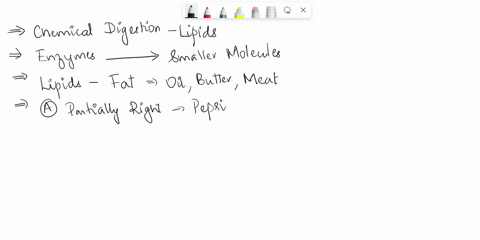 ⇒ Chemical Digestion - Lipids
⇒ Enzymes ⟶ Smaller Molecules
⇒ Lipids - Fat ⇒ Oil, Butter, Meat
⇒ Ⓐ Partially Right → Pepsi